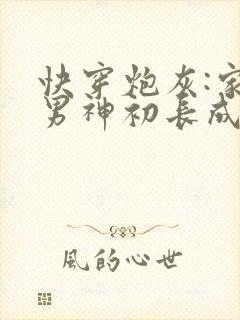 快穿炮灰:家
男神初长成
風的心世